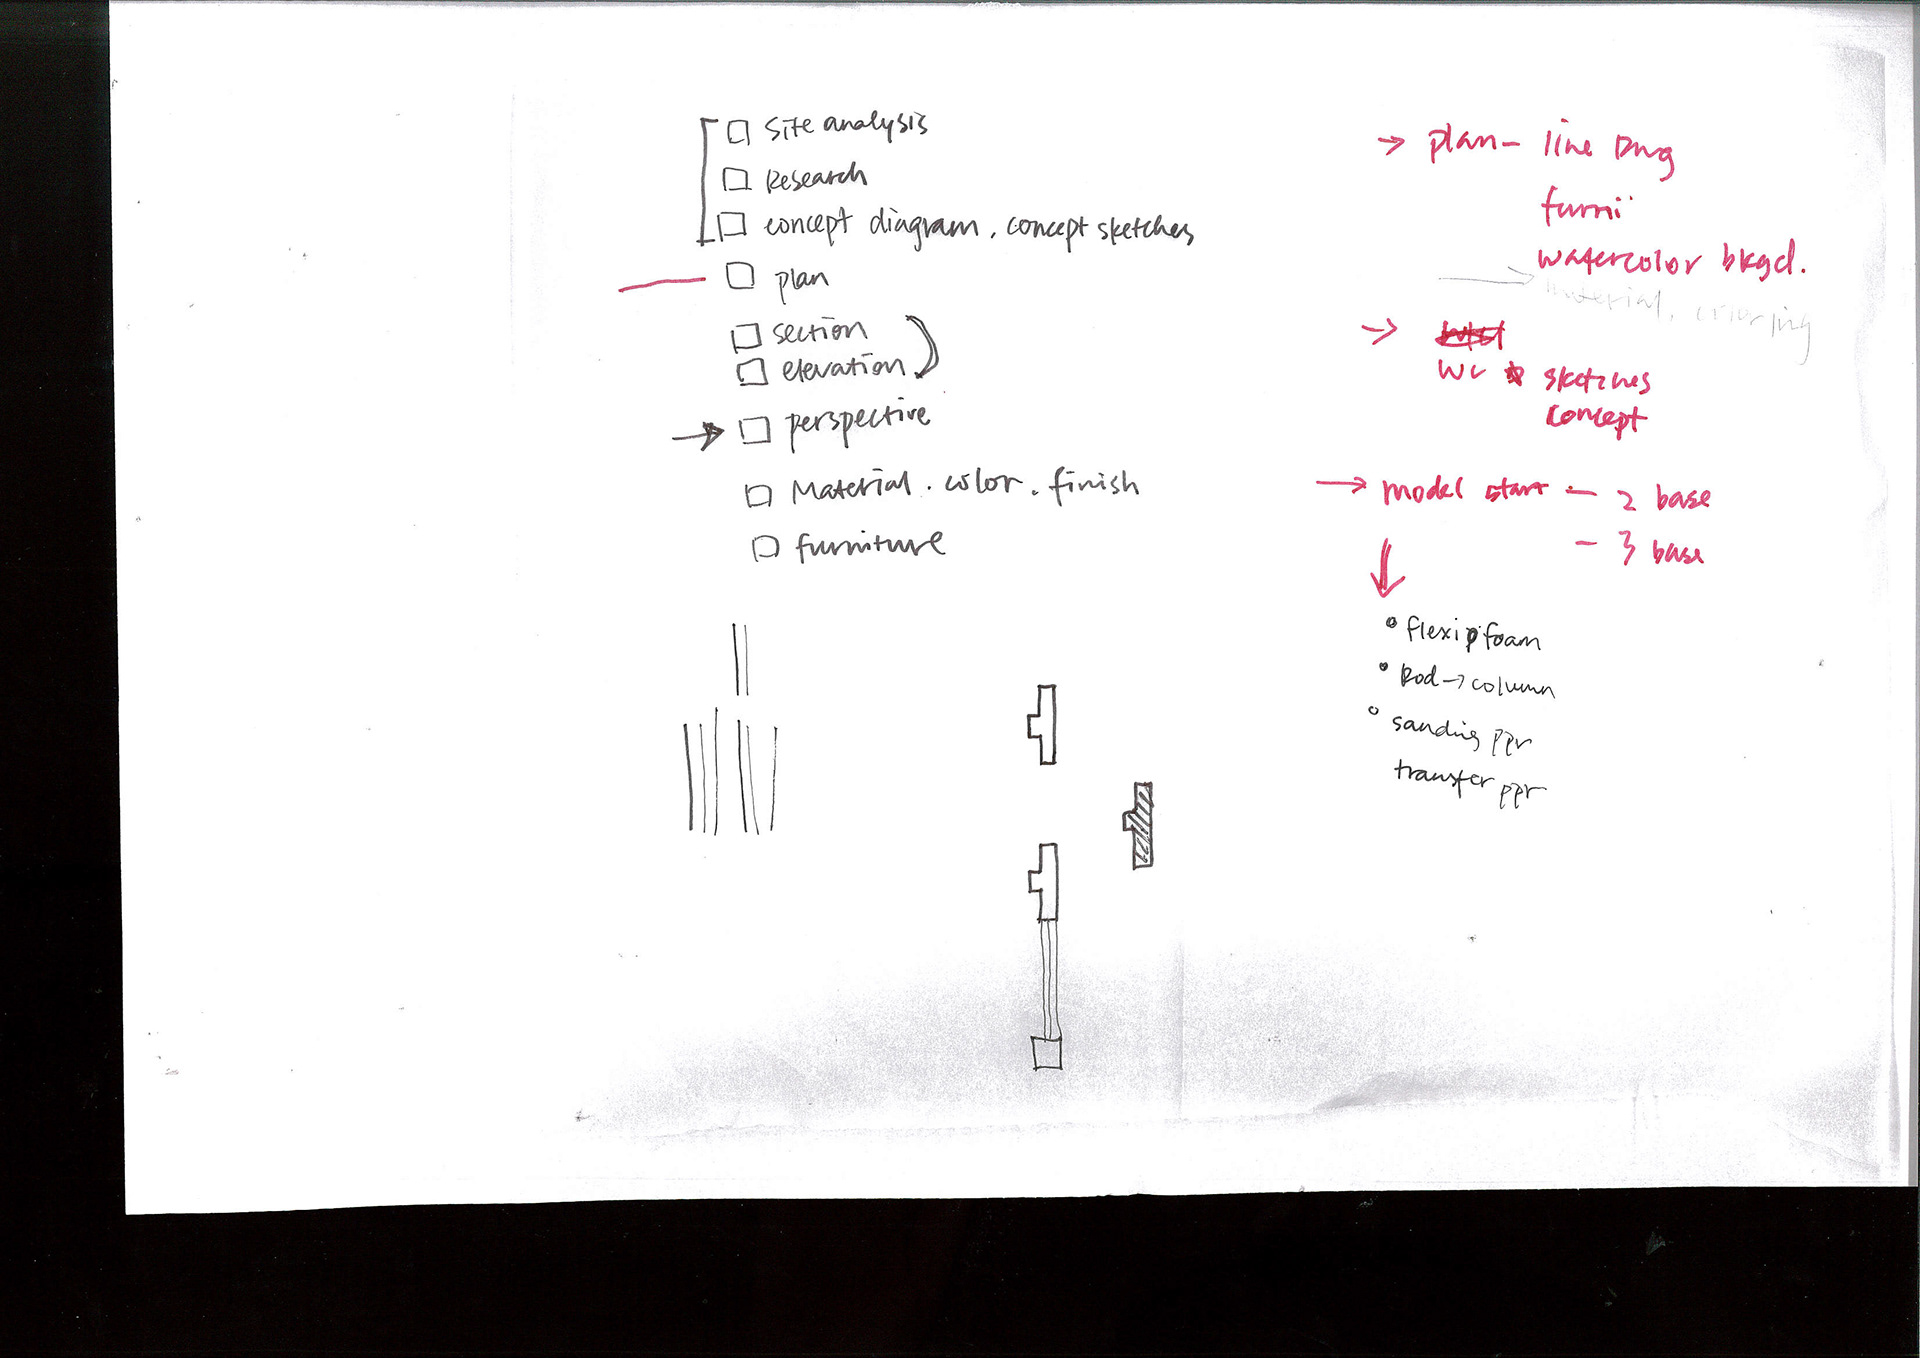 site analysis
Research
concept diagram. concept sketches
plan
section
elevation
perspective
Material. color. finish
furniture
→ plan - line Dwg
furni
watercolor bkgd.
→ material, coloring
→
WC sketches
concept
→ model start - 2 base
- 3 base
• flexi foam
• Rod → column
• sanding ppr
transfer ppr